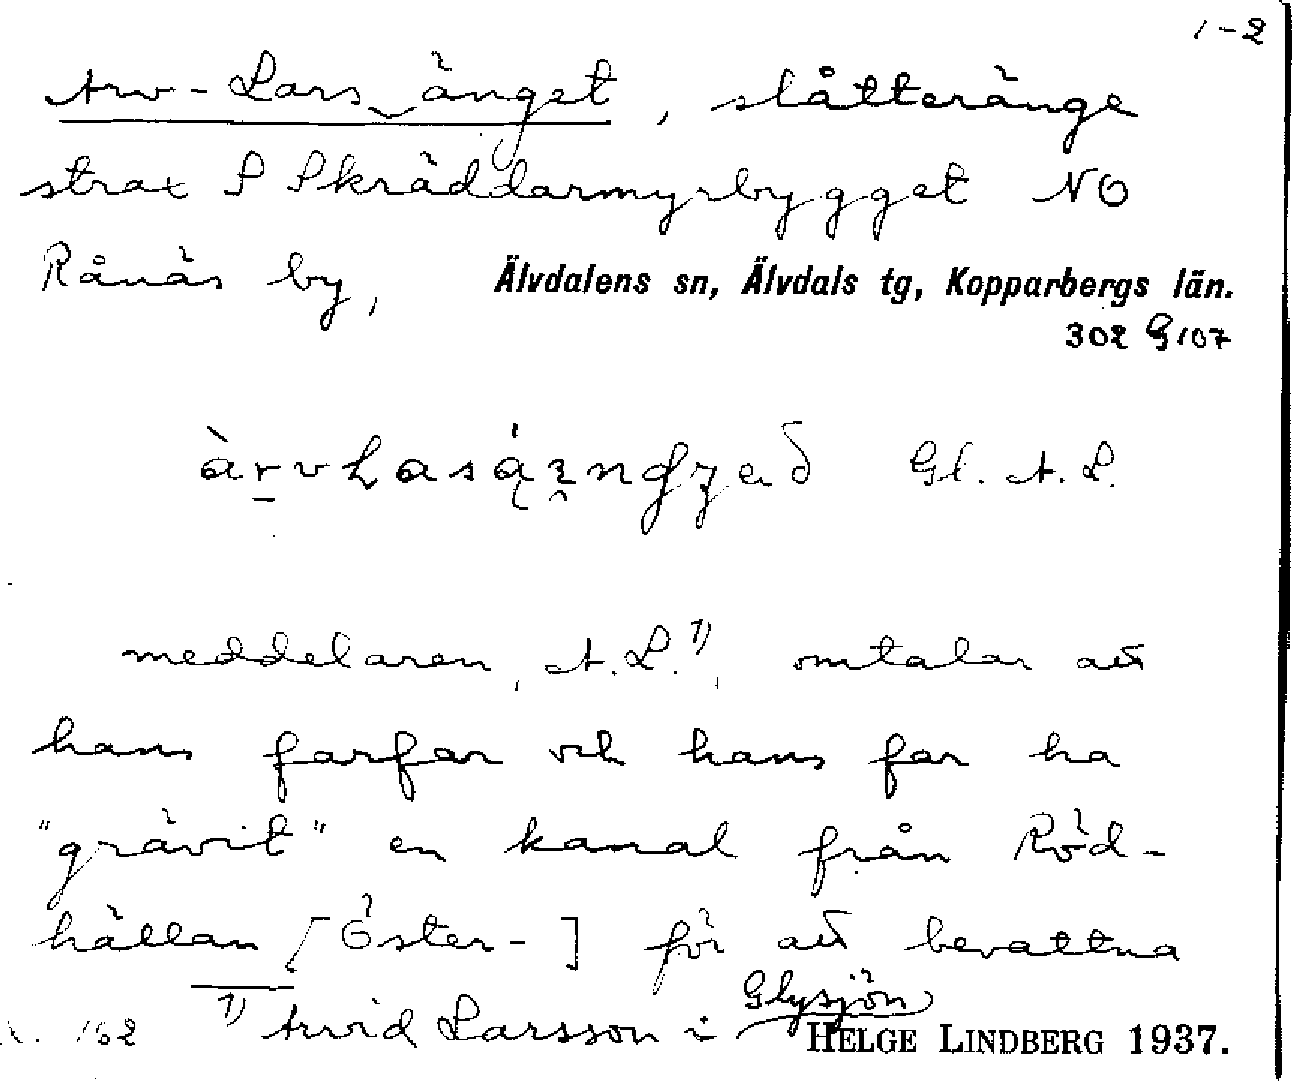 1-2
Arv-Lars_änget, slåtteränge
strax S Skräddarmyrbygget NO
Rånäs by, Älvdalens sn, Älvdals tg, Kopparbergs län.
302 G107
Gl. A. L.
meddelaren, A. L.¹⁾, omtalar att
hans farfar och hans far ha
"grävit" en kanal från Röd-
hällan [Öster-] för att bevattna
¹⁾ Arvid Larsson i Glysjön
HELGE LINDBERG 1937.